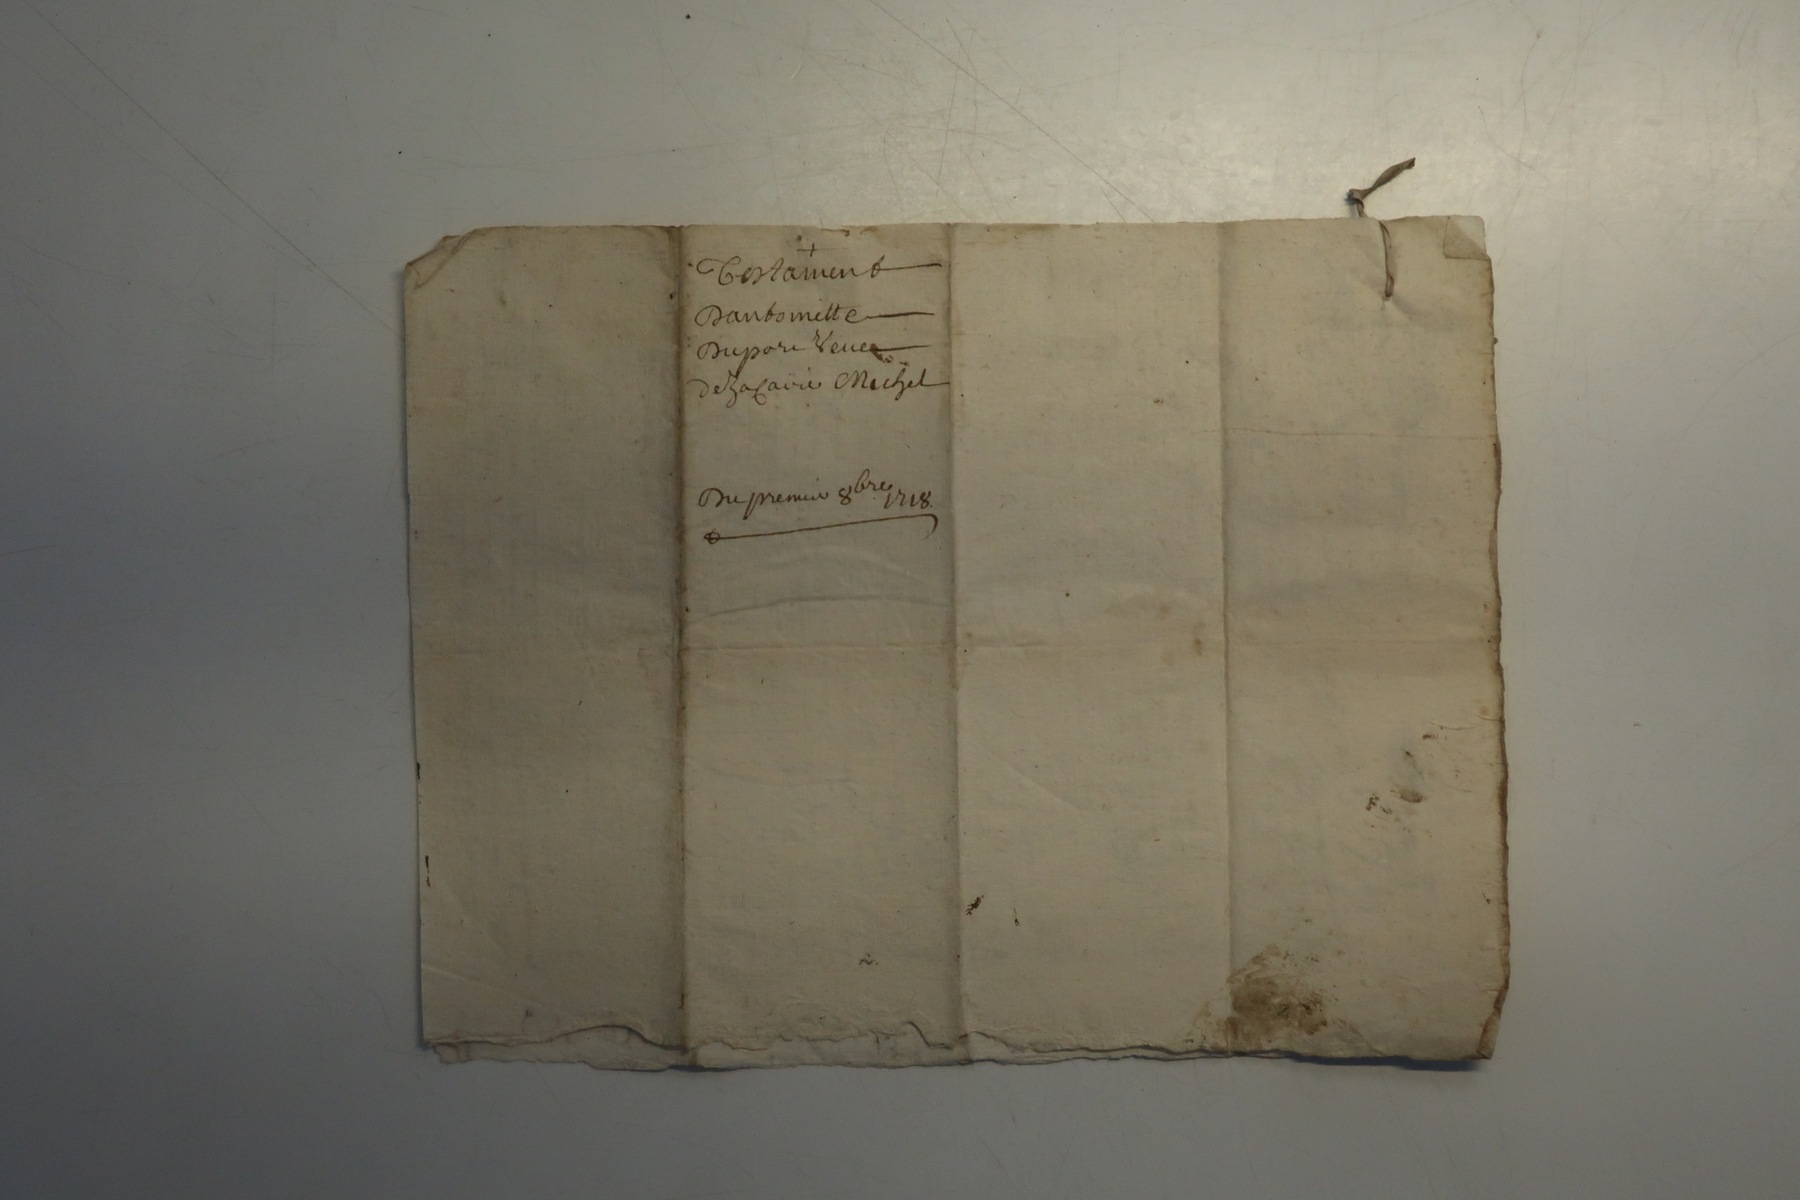 +
Testament
Dantoinette
Du pora Veuee
de Zacarie Michel
Du premier 8bre 1718.